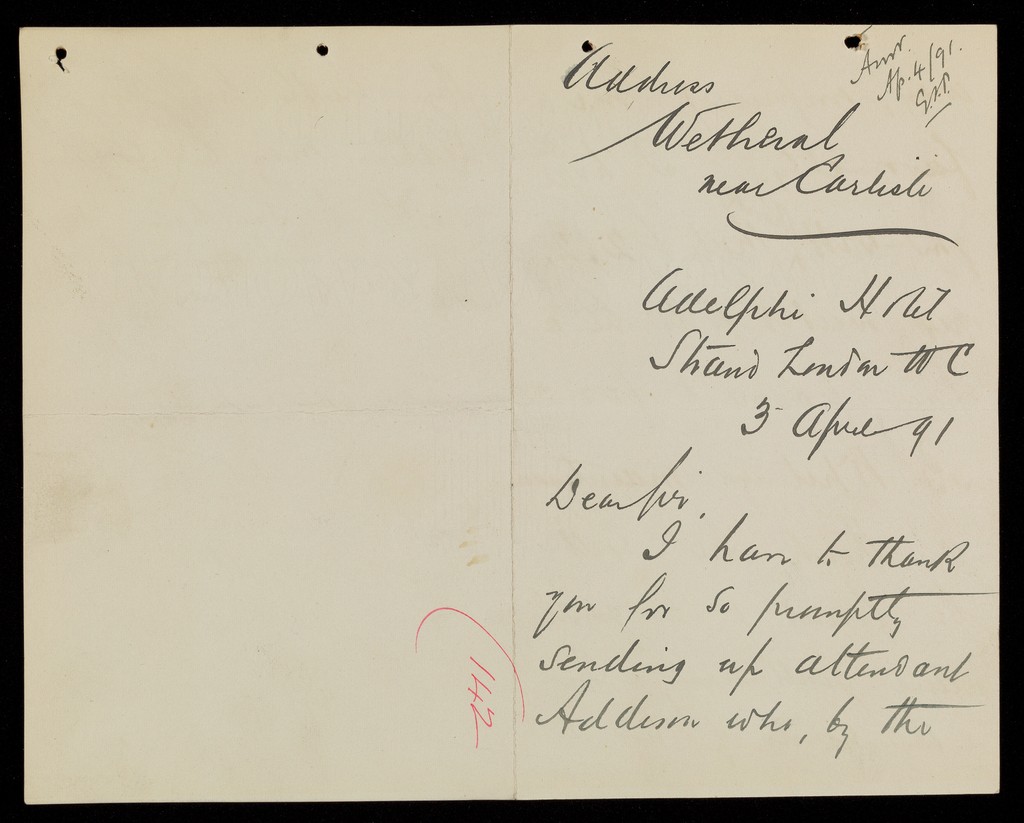 Answ.
Ap. 4/91.
G.F.P.
Address
Wetheral
near Carlisle
Adelphi Hotel
Strand London WC
3 April 91
Dear Sir,
I have to thank
you for so promptly
sending up attendant
Addison who, by the
142